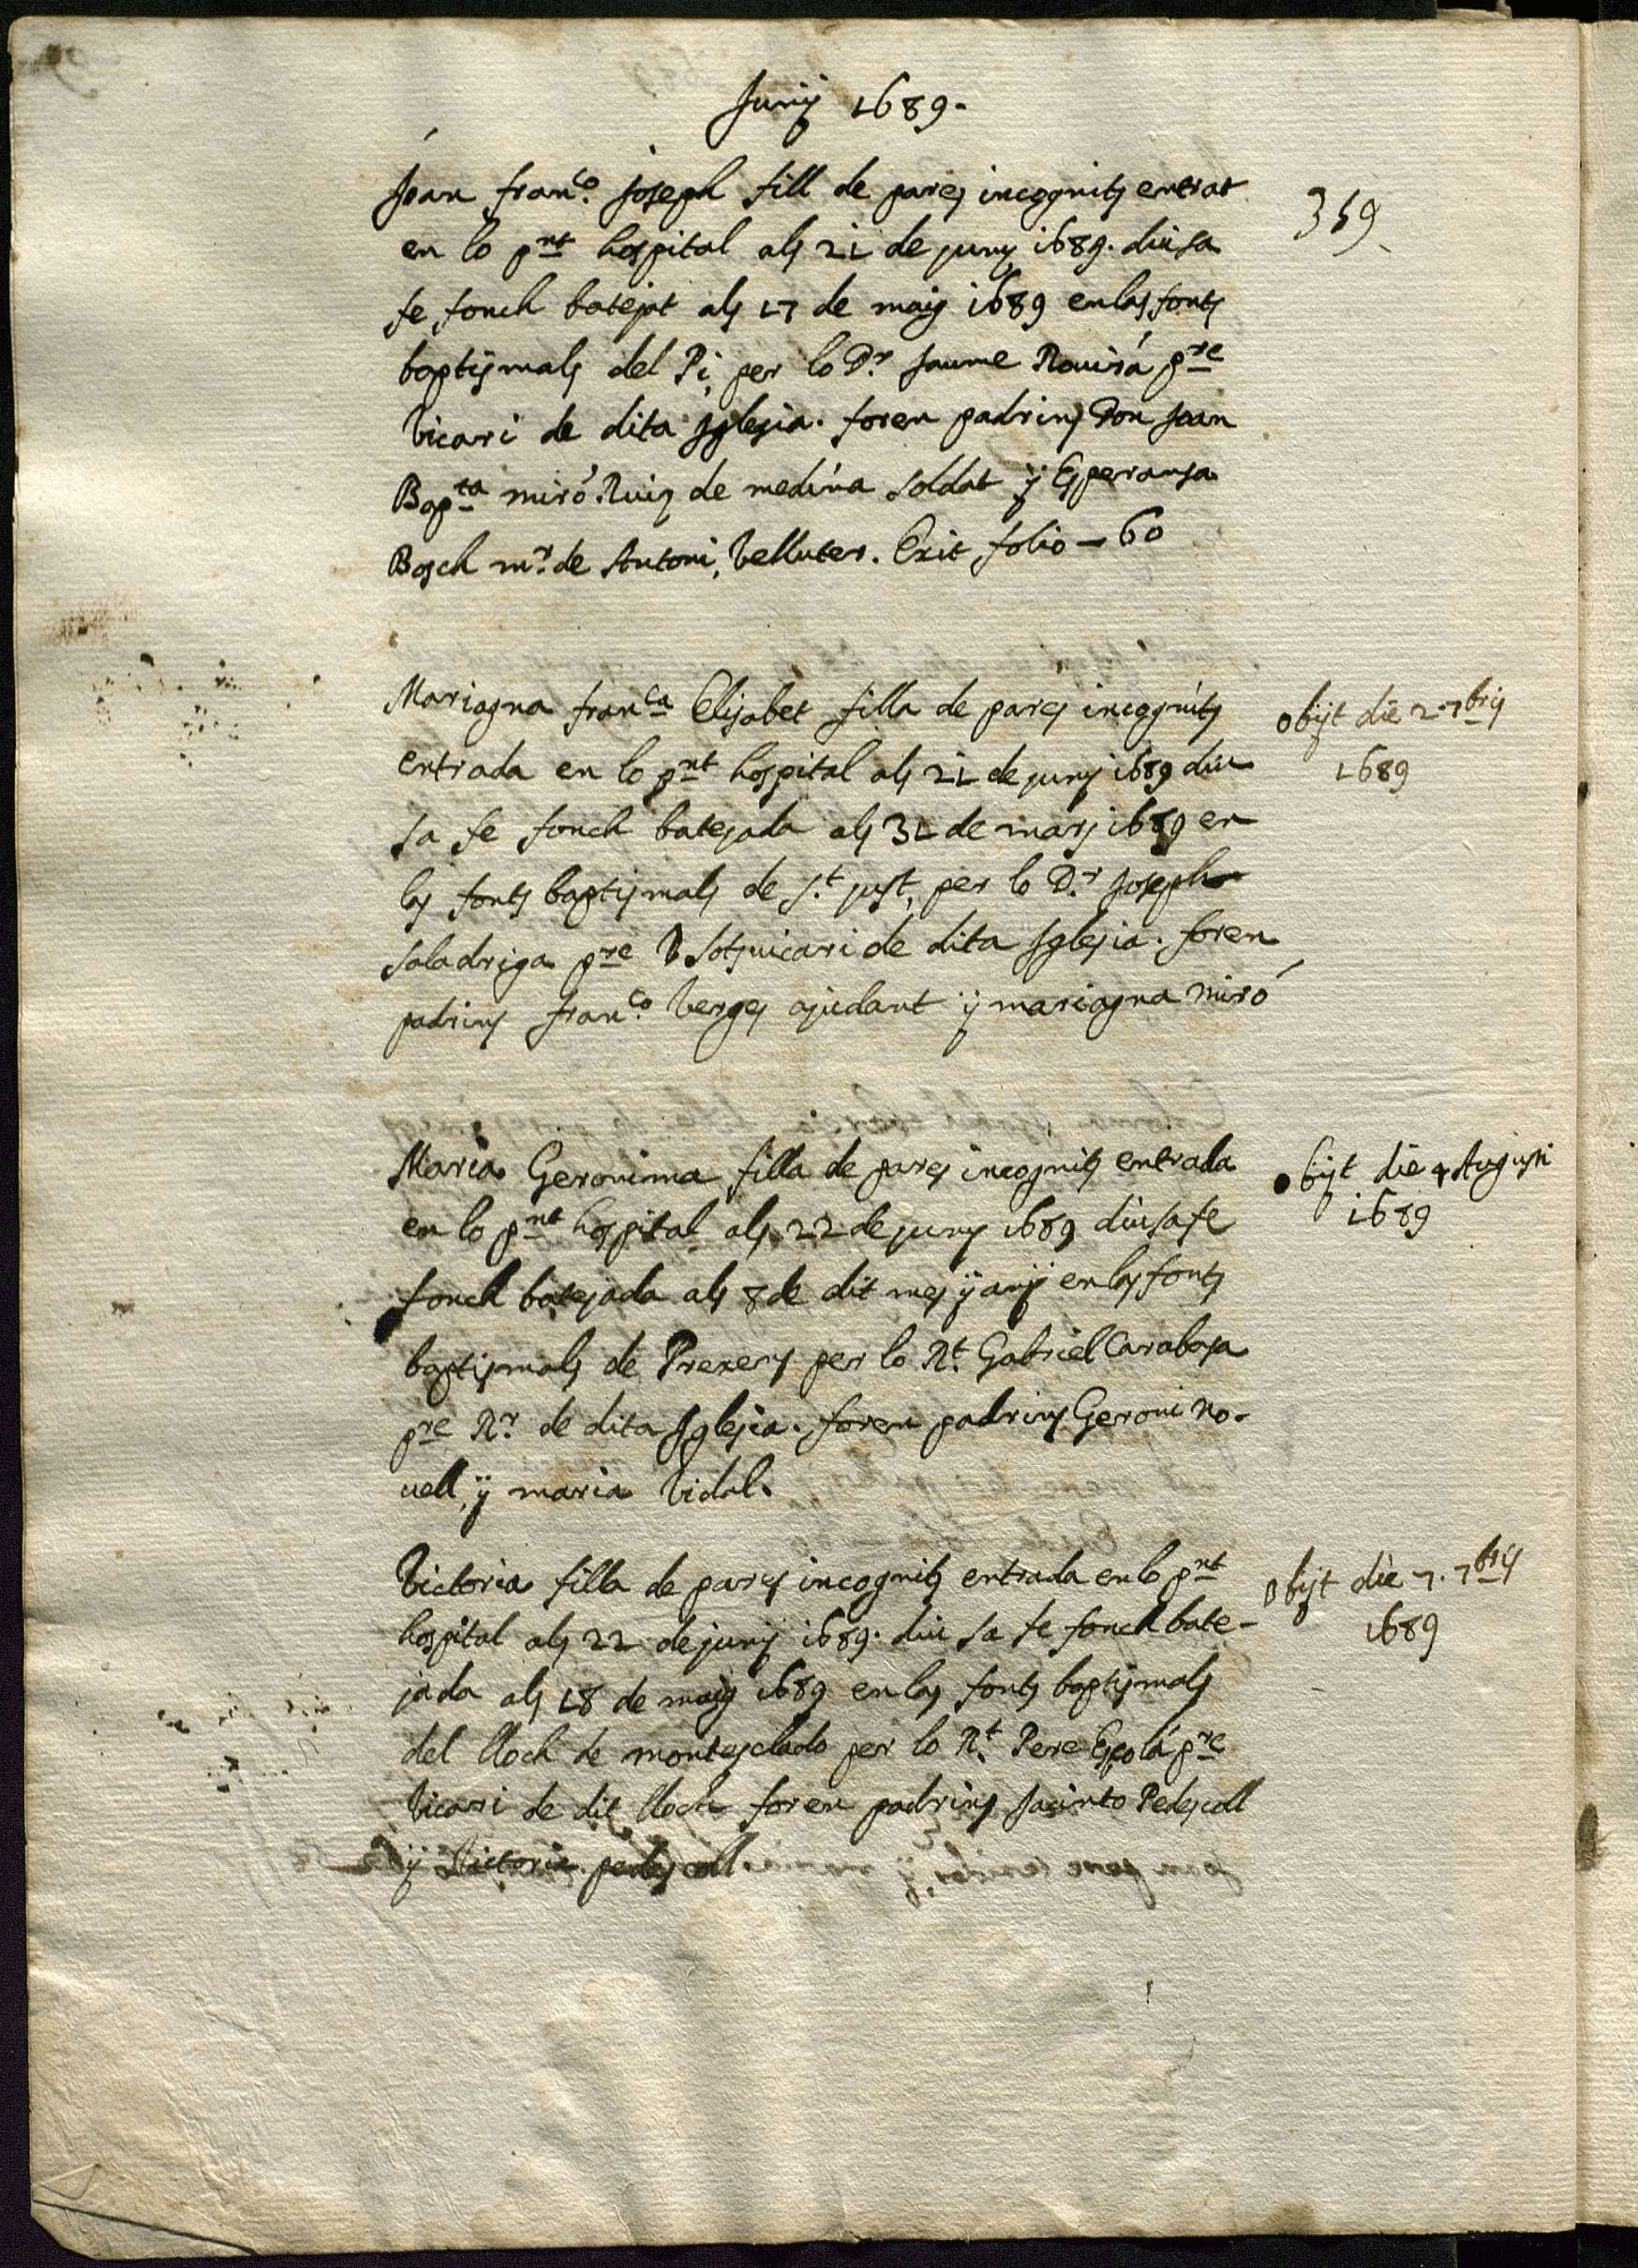 Juny 1689.
Joan fran.co Joseph fill de pares incognits entrat
en lo pnt hospital als 21 de juny 1689. diu sa
fe fonch batejat als 17 de maig 1689 en las fonts
baptismals del Pi per lo Dr Jaume Rouirá pre
Vicari de dita Iglesia. foren padrins Don Joan
Bapta miró Ruiz de medina soldat ÿ Esperansa
Bosch mr. de Antoni, Velluter. Exit folio — 60
359
Mariagna franca Elisabet filla de pares incognits
entrada en lo pnt hospital als 21 de juny 1689 diu
sa fe fonch batejada als 31 de mars 1689 en
las fonts baptismals de St. just, per lo Dr. Joseph
saladriga pre sotsvicari de dita Iglesia. foren
padrins fran.co Verges ajudant ÿ mariagna miró
obijt die 2. 7bris
1689
Maria Geronima filla de pares incognits entrada
en lo pnt hospital als 22 de juny 1689 diu sa fe
fonch batejada als 8 de dit mes ÿ anÿ en las fonts
baptismals de Prexens per lo Rt. Gabriel Carabasa
pre Rr. de dita Iglesia. foren padrins Geroni no-
uell, ÿ maria Vidal.
obijt die 4 Augusti
1689
Victoria filla de pares incognits entrada en lo pnt
hospital als 22 de juny 1689. diu sa fe fonch bate-
jada als 18 de maig 1689 en las fonts baptismals
del lloch de montesclado per lo Rt. Pere Escolá pre
Vicari de dit lloch foren padrins Jacinto Pedescoll
ÿ Victoria pedescoll.
obijt die 7. 7bris
1689